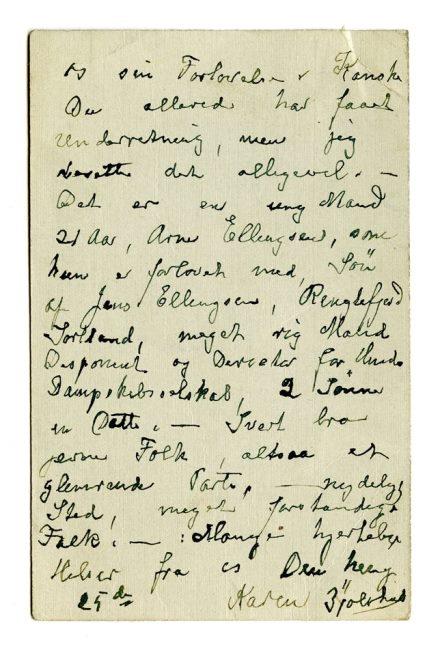 os sin Forlovelse. Kanske
Du allerede har faaet
Underretning, men jeg
berette det alligevel. —
Det er en ung Mand
21 Aar, Arne Ellingsen, som
hun er forlovet med, Søn
af Jens Ellingsen,
meget rig Mand
Disponent og Director for
Dampskibsselskab, 2 Sønner
en Datter. — Svert bra
pene Folk, altsaa et
glimrende Parti, — nydelig
Sted, meget forstandige
Folk. — : Mange hjertelige
Hilser fra os Din heng
25de Karen